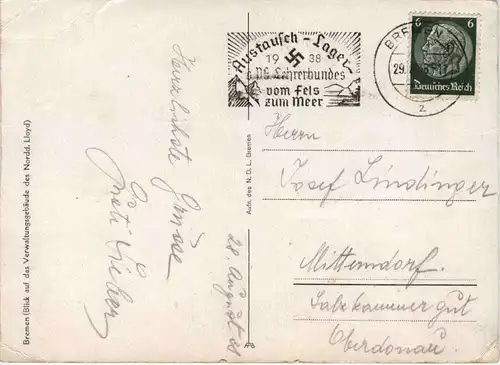 Austausch-Lager
19 38
d. DG. Lehrerbundes
vom Fels
zum Meer
BREMEN
29.
2
6 6
Deutsches Reich
Bremen (Blick auf das Verwaltungsgebäude des Nordd. Lloyd)
Herzlichste Grüsse
28. August
Aufn. des N. D. L. Bremen
Herrn
Josef Lindinger
Mitterndorf.
Salzkammergut
Oberdonau.